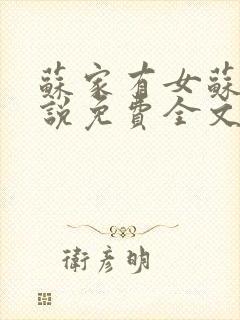 蘇家有女蘇
說免費全文
衛彥明